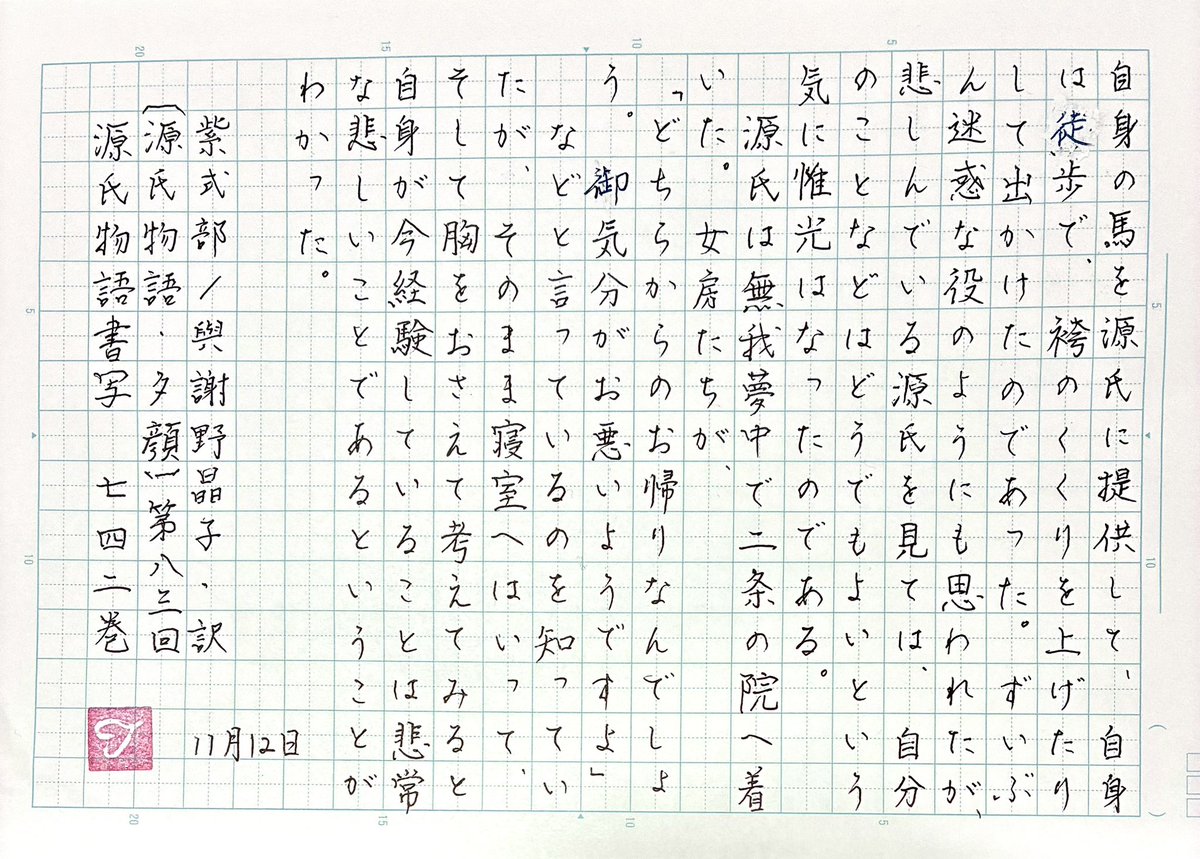 5
10
15
20
自身の馬を源氏に提供して、自身
は徒歩で、袴のくくりを上げたり
して出かけたのであった。ずいぶ
ん迷惑な役のようにも思われたが、
悲しんでいる源氏を見ては、自分
のことなどはどうでもよいという
気に惟光はなったのである。
源氏は無我夢中で二条の院へ着
いた。女房たちが、
「どちらからのお帰りなんでしょ
う。御気分がお悪いようですよ」
などと言っているのを知ってい
たが、そのまま寝室へはいって、
そして胸をおさえて考えてみると
自身が今経験していることは悲常
な悲しいことであるということが
わかった。
紫式部／與謝野晶子・訳
(源氏物語・夕顔)第八三回
源氏物語書写 七四二巻
11月12日
5
10
5
10
5
10
15
20